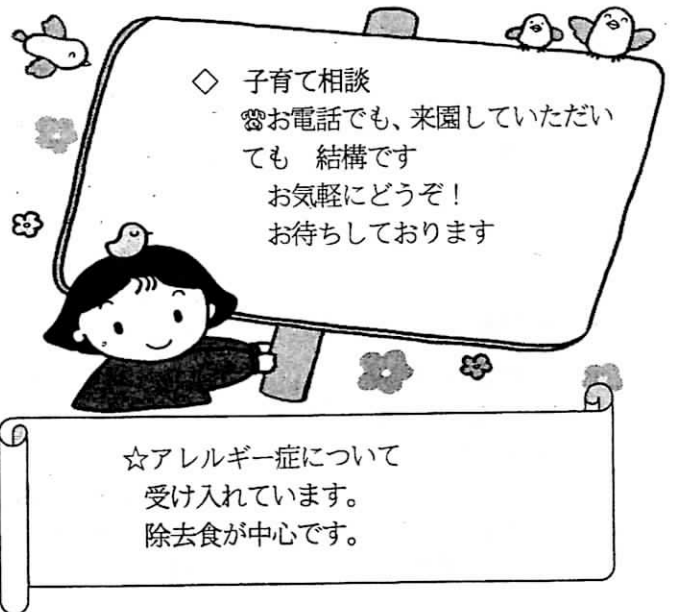 ◇ 子育て相談
☎お電話でも、来園していただい
ても 結構です
お気軽にどうぞ！
お待ちしております
☆アレルギー症について
受け入れています。
除去食が中心です。